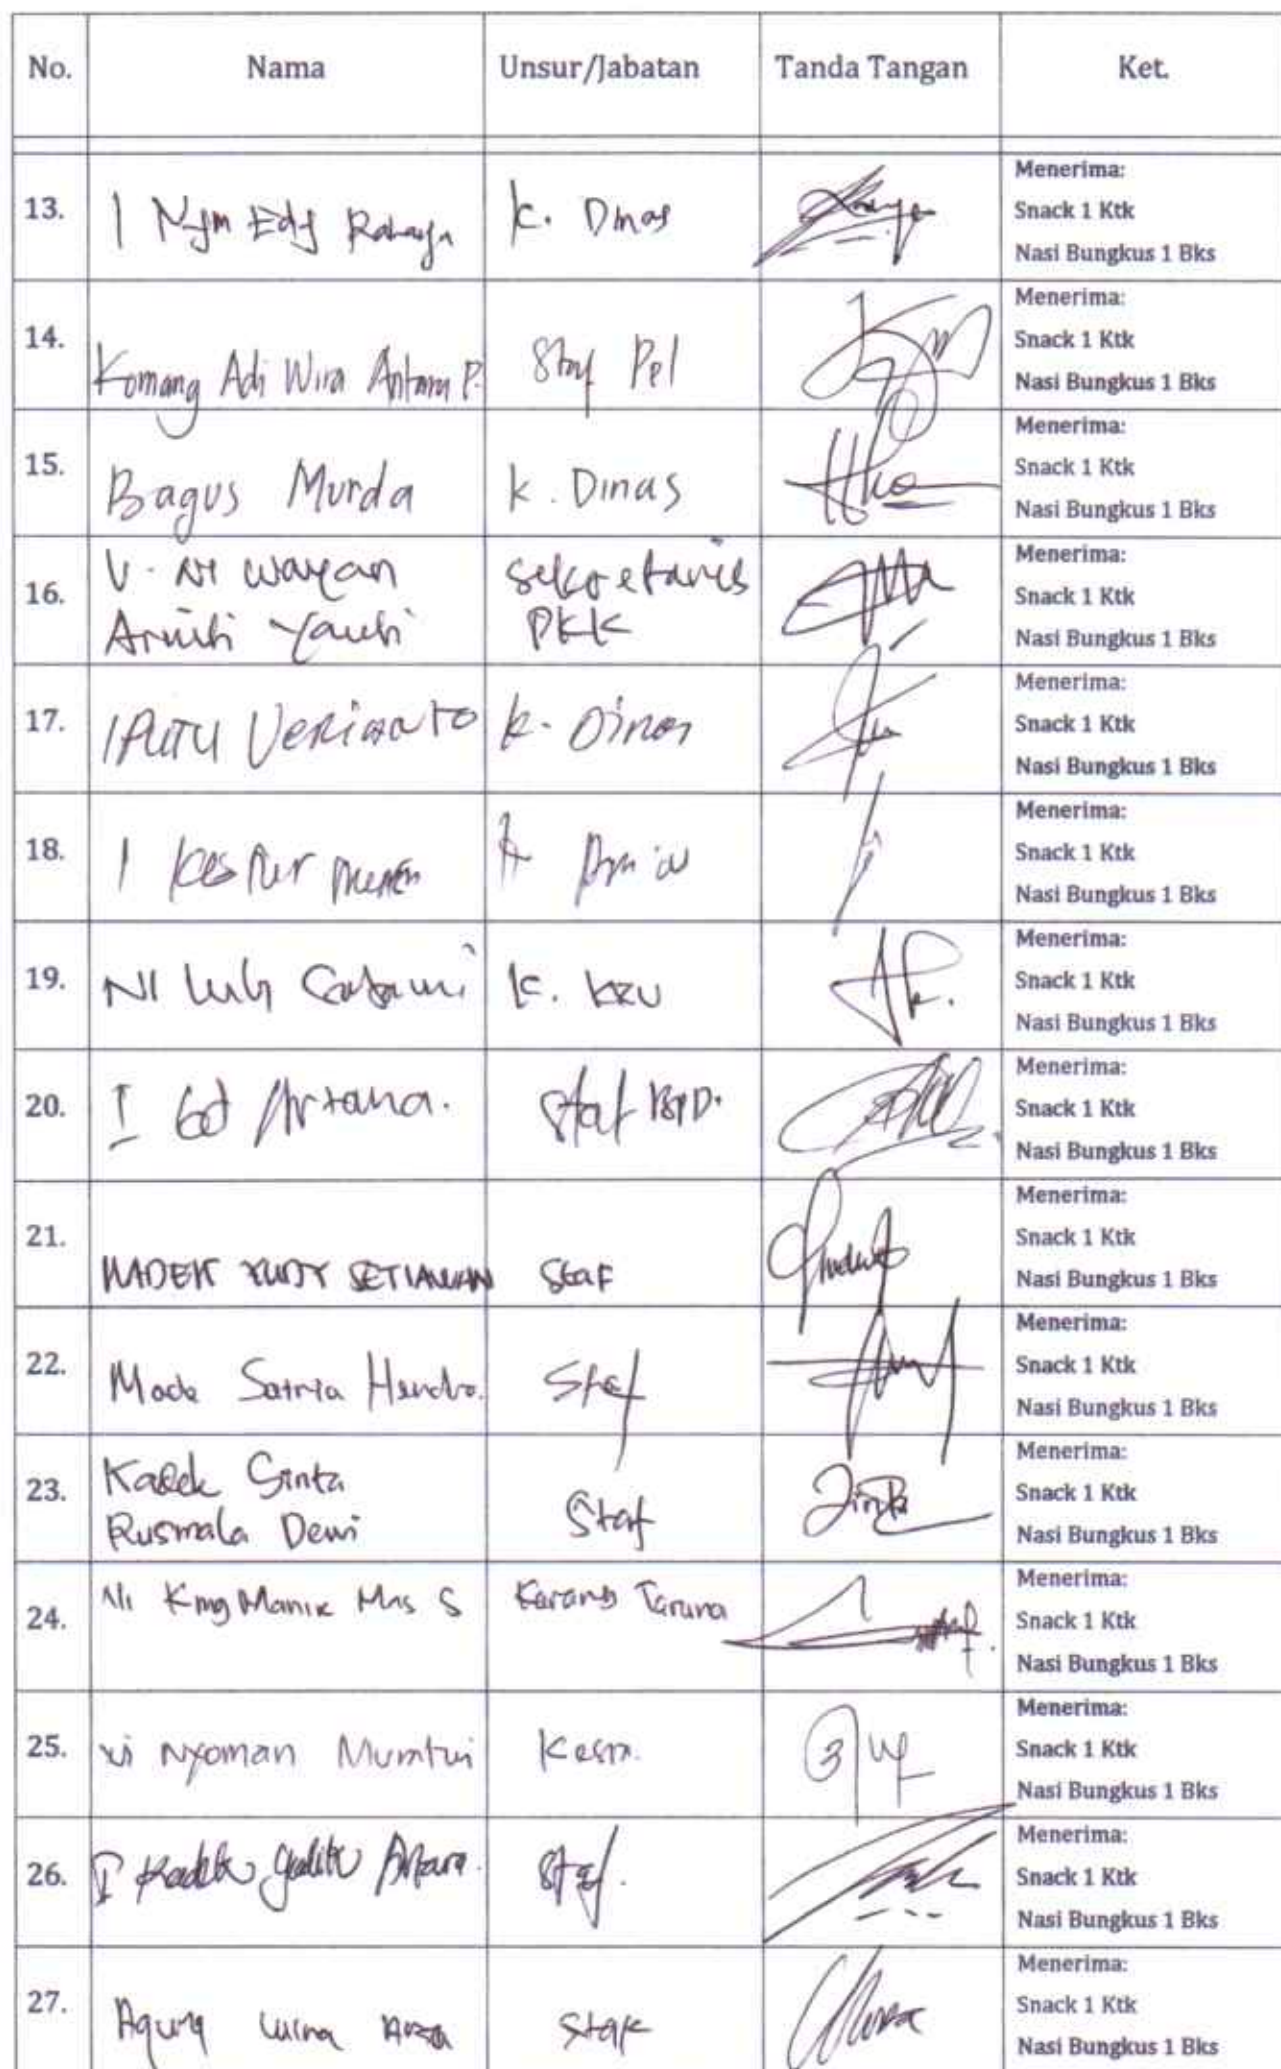 No. Nama Unsur/Jabatan Tanda Tangan Ket.
13. I Nym Edy Rahayu K. Dinas Menerima:
Snack 1 Ktk
Nasi Bungkus 1 Bks
14. Komang Adi Wira Antara P. Staf Pel Menerima:
Snack 1 Ktk
Nasi Bungkus 1 Bks
15. Bagus Murda K. Dinas Menerima:
Snack 1 Ktk
Nasi Bungkus 1 Bks
16. Ni Wayan Sekretaris Menerima:
PKK Snack 1 Ktk
Nasi Bungkus 1 Bks
17. I PUTU K. Dinas Menerima:
Snack 1 Ktk
Nasi Bungkus 1 Bks
18. I Menerima:
Snack 1 Ktk
Nasi Bungkus 1 Bks
19. NI Luh K. Menerima:
Snack 1 Ktk
Nasi Bungkus 1 Bks
20. I Gd Artana. Staf BPD. Menerima:
Snack 1 Ktk
Nasi Bungkus 1 Bks
21. KADEK YUDY SETIAWAN Staf Menerima:
Snack 1 Ktk
Nasi Bungkus 1 Bks
22. Made Satria Hendra. Staf Menerima:
Snack 1 Ktk
Nasi Bungkus 1 Bks
23. Kadek Sinta Menerima:
Rusmala Dewi Staf Snack 1 Ktk
Nasi Bungkus 1 Bks
24. Ni Kmg Manik Mas S Karang Taruna Menerima:
Snack 1 Ktk
Nasi Bungkus 1 Bks
25. Ni Nyoman Kesra. Menerima:
Snack 1 Ktk
Nasi Bungkus 1 Bks
26. I Kadek Staf. Menerima:
Snack 1 Ktk
Nasi Bungkus 1 Bks
27. Agung Wira Staf Menerima:
Snack 1 Ktk
Nasi Bungkus 1 Bks